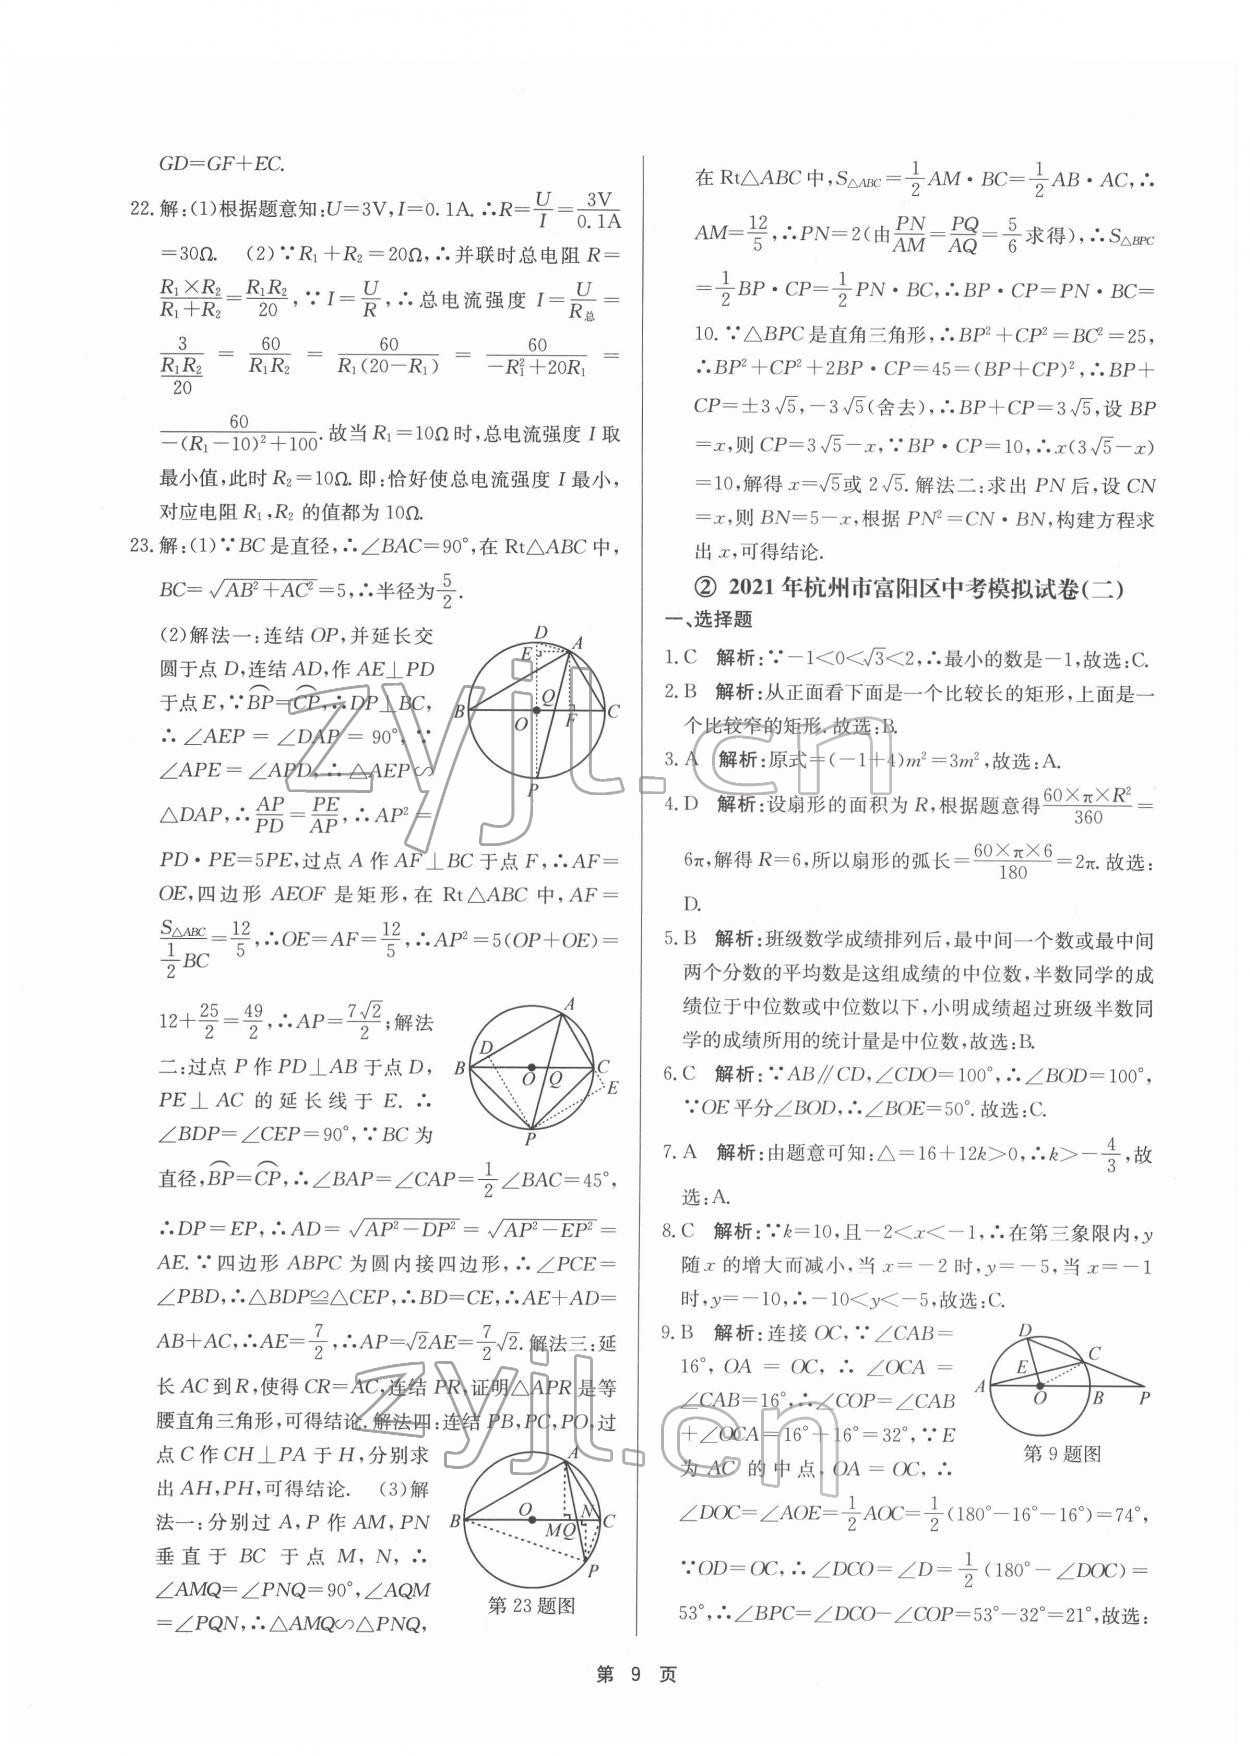 GD=GF+EC.
22.解:(1)根据题意知:U=3V,I=0.1A.∴R=U/I=3V/0.1A
=30Ω. (2)∵R₁+R₂=20Ω,∴并联时总电阻 R=
R₁×R₂/R₁+R₂=R₁R₂/20,∵I=U/R,∴总电流强度 I=U/R总=
3/(R₁R₂/20)=60/R₁R₂=60/R₁(20-R₁)=60/-R₁²+20R₁=
60/-(R₁-10)²+100.故当 R₁=10Ω时,总电流强度 I 取
最小值,此时 R₂=10Ω.即:恰好使总电流强度 I 最小,
对应电阻 R₁,R₂ 的值都为 10Ω.
23.解:(1)∵BC 是直径,∴∠BAC=90°,在 Rt△ABC 中,
BC=√(AB²+AC²)=5,∴半径为5/2.
(2)解法一:连结 OP,并延长交
圆于点 D,连结 AD,作 AE⊥PD
于点 E,∵BP⌒=CP⌒,∴DP⊥BC,
∴∠AEP=∠DAP=90°,∵
∠APE=∠APD,∴△AEP∽
△DAP,∴AP/PD=PE/AP,∴AP²=
PD·PE=5PE,过点 A 作 AF⊥BC 于点 F,∴AF=
OE,四边形 AEOF 是矩形,在 Rt△ABC 中,AF=
S△ABC/(1/2 BC)=12/5,∴OE=AF=12/5,∴AP²=5(OP+OE)=
12+25/2=49/2,∴AP=7√2/2;解法
二:过点 P 作 PD⊥AB 于点 D,
PE⊥AC 的延长线于 E.∴
∠BDP=∠CEP=90°,∵BC 为
直径,BP⌒=CP⌒,∴∠BAP=∠CAP=1/2∠BAC=45°,
∴DP=EP,∴AD=√(AP²-DP²)=√(AP²-EP²)=
AE.∵四边形 ABPC 为圆内接四边形,∴∠PCE=
∠PBD,∴△BDP≌△CEP,∴BD=CE,∴AE+AD=
AB+AC,∴AE=7/2,∴AP=√2AE=7/2√2.解法三:延
长 AC 到 R,使得 CR=AC,连结 PR,证明△APR 是等
腰直角三角形,可得结论.解法四:连结 PB,PC,PO,过
点 C 作 CH⊥PA 于 H,分别求
出 AH,PH,可得结论. (3)解
法一:分别过 A,P 作 AM,PN
垂直于 BC 于点 M,N,∴
∠AMQ=∠PNQ=90°,∠AQM
=∠PQN,∴△AMQ∽△PNQ,
D
A
E
B
Q
O
F
C
P
A
D
B
O
Q
C
E
P
A
O
N
B
MQ
C
P
第 23 题图
在 Rt△ABC 中,S△ABC=1/2AM·BC=1/2AB·AC,∴
AM=12/5,∴PN=2(由PN/AM=PQ/AQ=5/6求得),∴S△BPC
=1/2BP·CP=1/2PN·BC,∴BP·CP=PN·BC=
10.∵△BPC 是直角三角形,∴BP²+CP²=BC²=25,
∴BP²+CP²+2BP·CP=45=(BP+CP)²,∴BP+
CP=±3√5,-3√5(舍去),∴BP+CP=3√5,设 BP
=x,则 CP=3√5-x,∵BP·CP=10,∴x(3√5-x)
=10,解得 x=√5或 2√5.解法二:求出 PN 后,设 CN
=x,则 BN=5-x,根据 PN²=CN·BN,构建方程求
出 x,可得结论.
② 2021 年杭州市富阳区中考模拟试卷(二)
一、选择题
1.C 解析:∵-1<0<√3<2,∴最小的数是-1,故选:C.
2.B 解析:从正面看下面是一个比较长的矩形,上面是一
个比较窄的矩形.故选:B.
3.A 解析:原式=(-1+4)m²=3m²,故选:A.
4.D 解析:设扇形的面积为 R,根据题意得60×π×R²/360=
6π,解得 R=6,所以扇形的弧长=60×π×6/180=2π.故选:
D.
5.B 解析:班级数学成绩排列后,最中间一个数或最中间
两个分数的平均数是这组成绩的中位数,半数同学的成
绩位于中位数或中位数以下,小明成绩超过班级半数同
学的成绩所用的统计量是中位数,故选:B.
6.C 解析:∵AB∥CD,∠CDO=100°,∴∠BOD=100°,
∵OE 平分∠BOD,∴∠BOE=50°.故选:C.
7.A 解析:由题意可知:△=16+12k>0,∴k>-4/3,故
选:A.
8.C 解析:∵k=10,且-2<x<-1,∴在第三象限内,y
随 x 的增大而减小,当 x=-2 时,y=-5,当 x=-1
时,y=-10,∴-10<y<-5,故选:C.
9.B 解析:连接 OC,∵∠CAB=
16°,OA=OC,∴∠OCA=
∠CAB=16°,∴∠COP=∠CAB
+∠OCA=16°+16°=32°,∵E
为 AC 的中点,OA=OC,∴
∠DOC=∠AOE=1/2AOC=1/2(180°-16°-16°)=74°,
∵OD=OC,∴∠DCO=∠D=1/2(180°-∠DOC)=
53°,∴∠BPC=∠DCO-∠COP=53°-32°=21°,故选:
D
C
E
A
O
B
P
第 9 题图
第 9 页
zyjl.cn
zyjl.cn